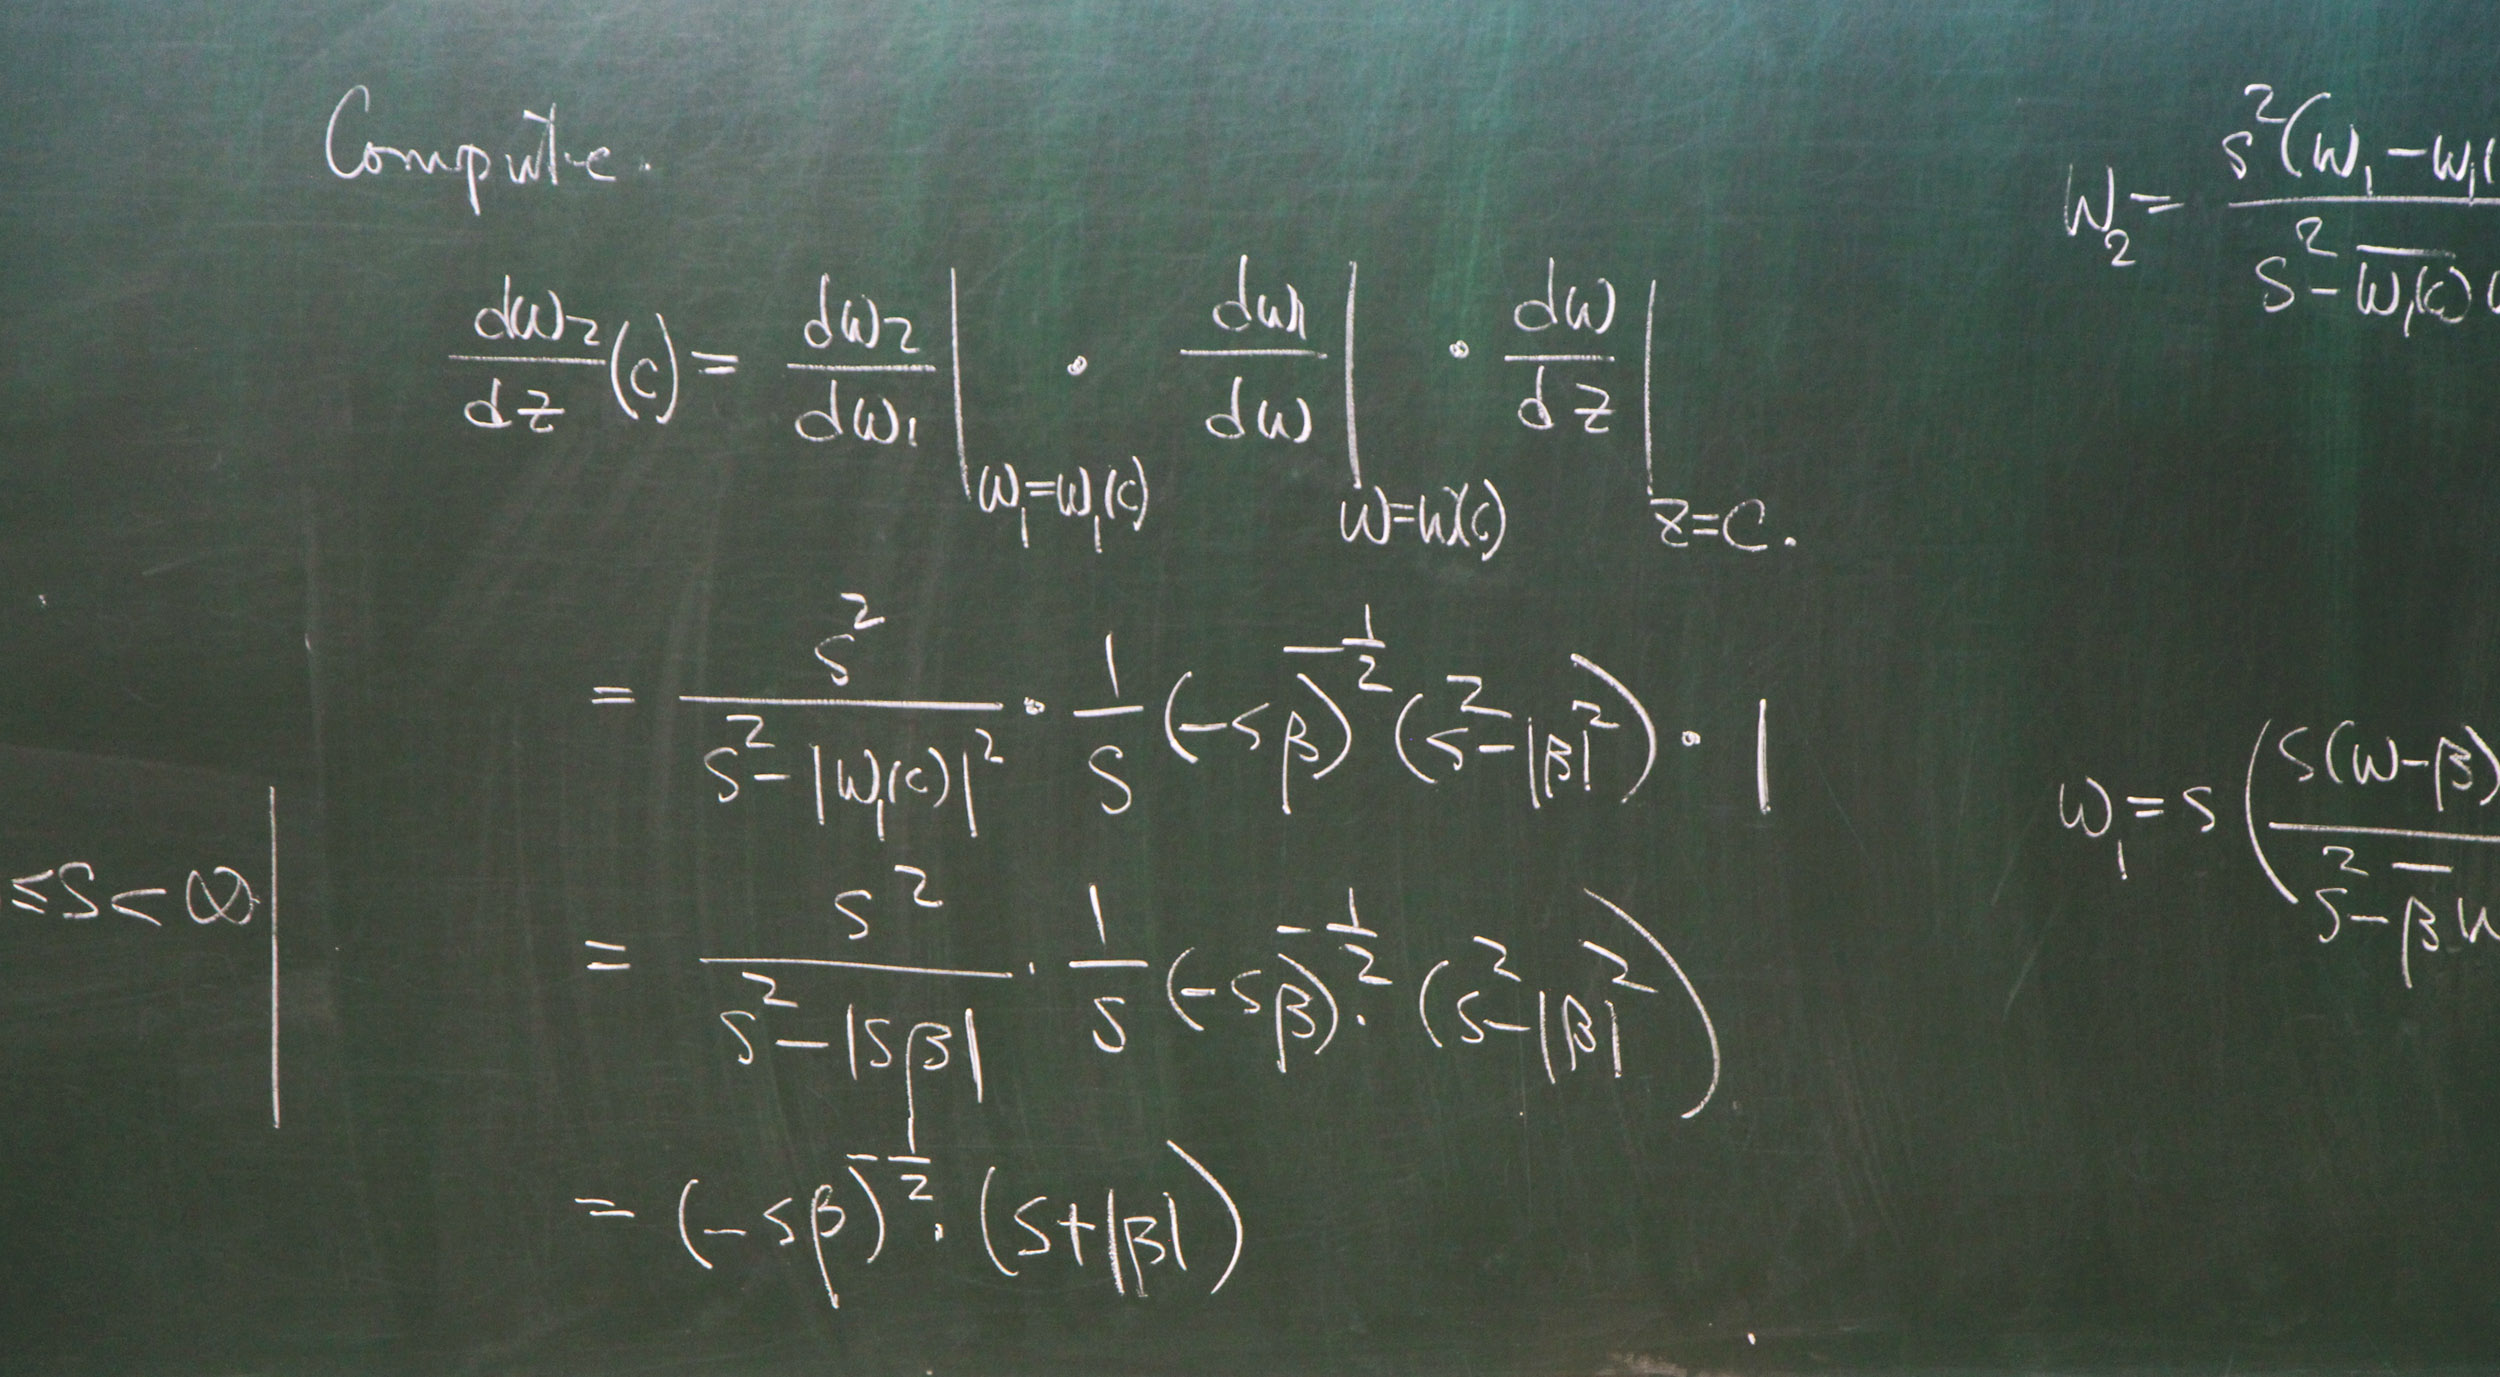 Compute.
dw₂/dz (c) = dw₂/dw₁ |w₁=w₁(c) · dw₁/dw |w=w(c) · dw/dz |z=c.
= s²/(s²-|w₁(c)|²) · 1/s (-sβ)^(-1/2) (s²-|β|²) · 1
= s²/(s²-|sβ|) · 1/s (-sβ)^(-1/2) · (s²-|β|²)
= (-sβ)^(-1/2) · (s+|β|)
≤s<∞
w₂= s²(w₁-w₁(
s²-w̅₁̅(̅c̅)̅
w₁=s( s(w-β)
s²-β̅w